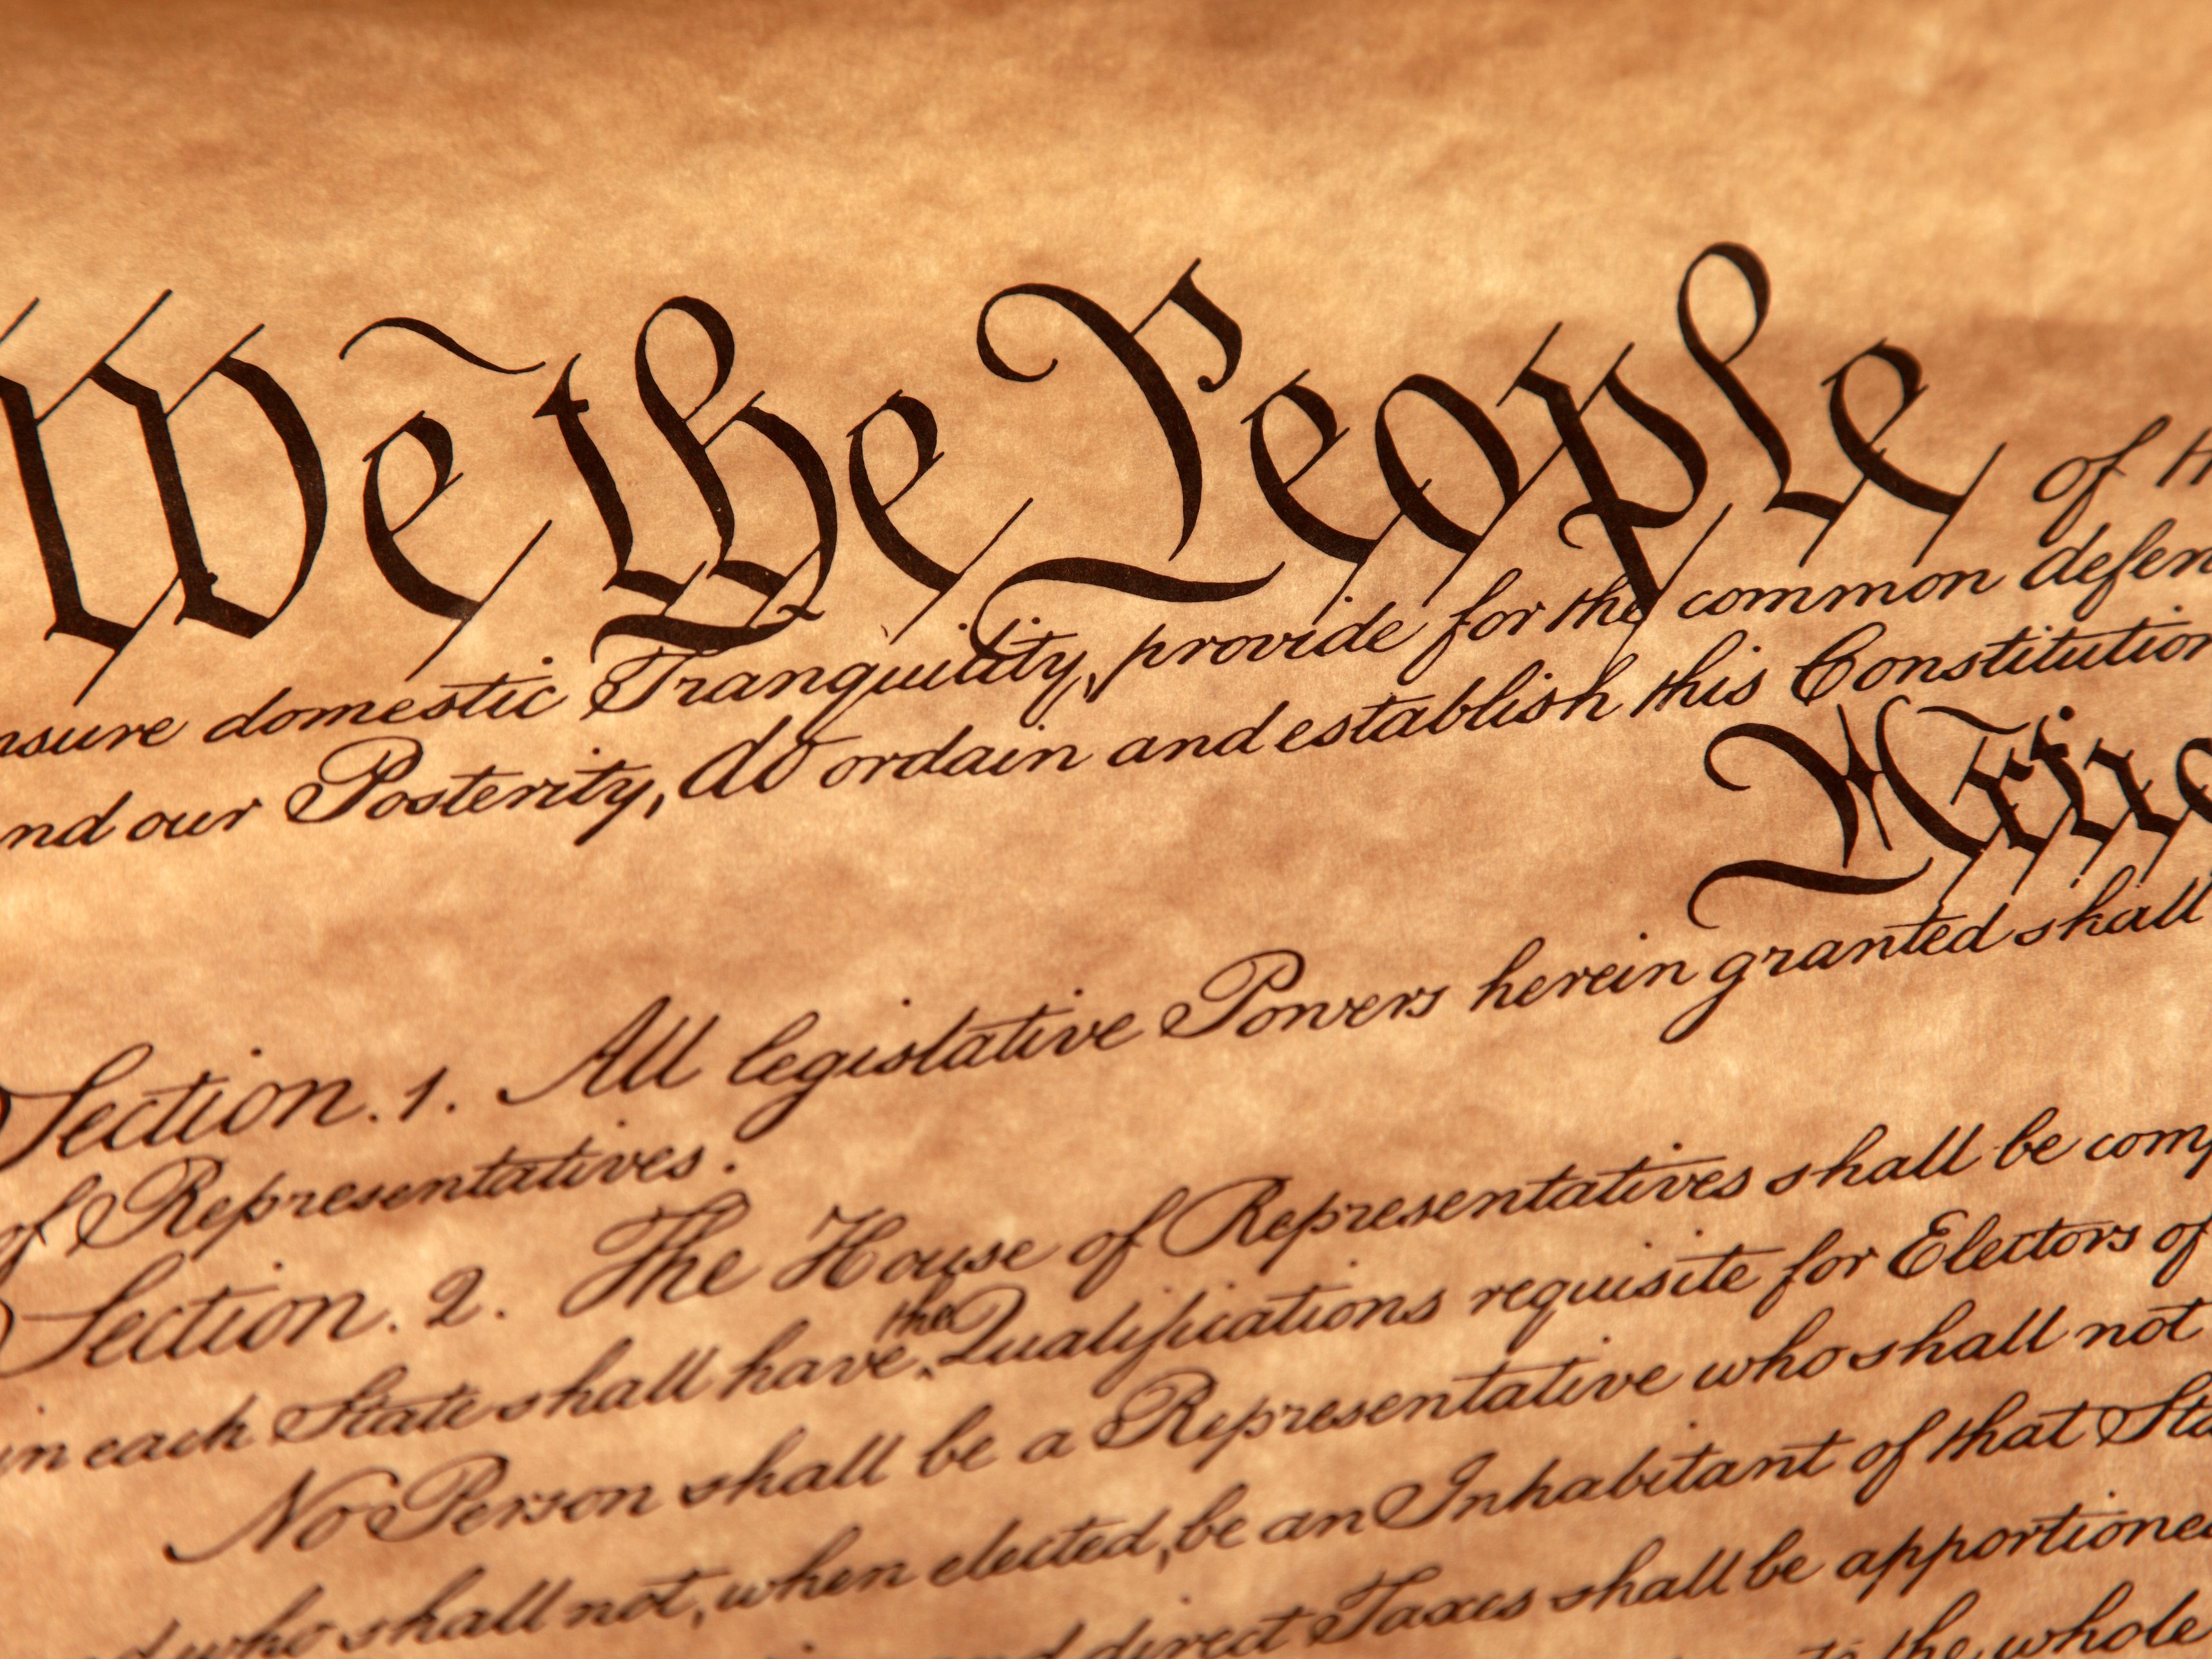 We the People of
domestic Tranquility, provide for the common
our Posterity, do ordain and establish this Constitution
Section. 1. All legislative Powers herein granted shall
of Representatives.
Section. 2. The House of Representatives shall be
in each State shall have the Qualifications requisite for Electors of
No Person shall be a Representative who shall not
who shall not, when elected, be an Inhabitant of that
direct Taxes shall be
to the whole